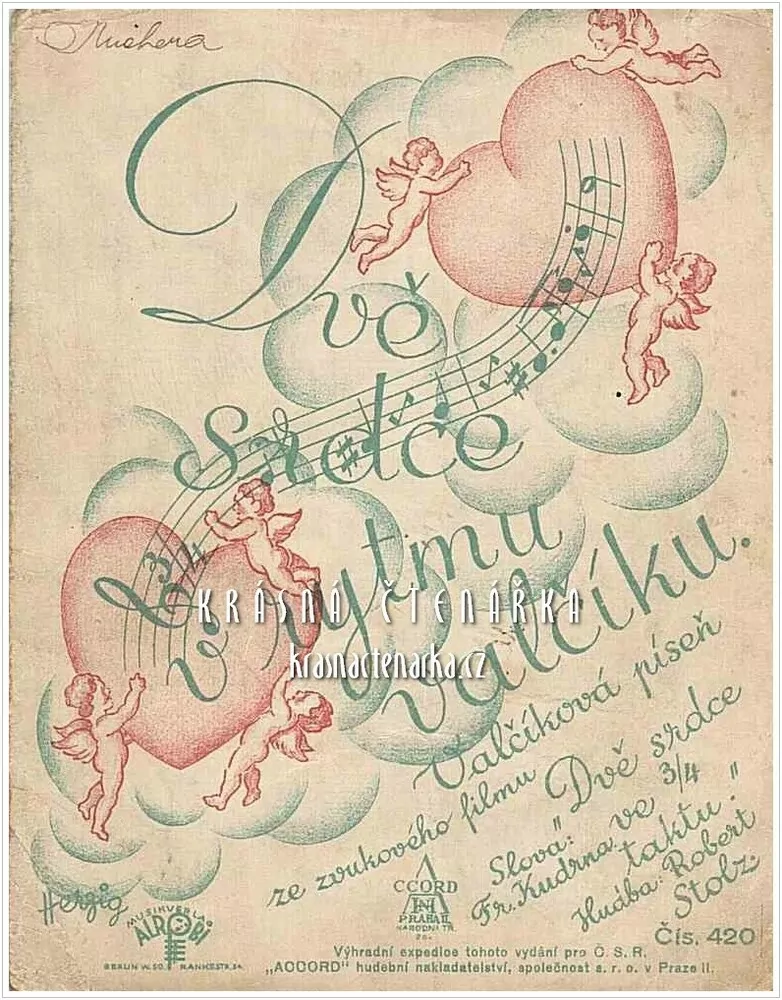 Dvě
Srdce
v rytmu
valčíku.
3/4
KRÁSNÁ ČTENÁŘKA
krasnactenarka.cz
Valčíková píseň
ze zvukového filmu „Dvě srdce
ve 3/4
taktu"
Slova:
Fr. Kudrna.
Hudba: Robert
Stolz.
Herzig
MUSIKVERLAG
ALROBI
BERLIN W.50. RANKESTR.34
ACCORD
PRAHA II.
NÁRODNÍ TŘ.
Čís. 420
Výhradní expedice tohoto vydání pro Č. S. R.
„ACCORD" hudební nakladatelství, společnost s. r. o. v Praze II.